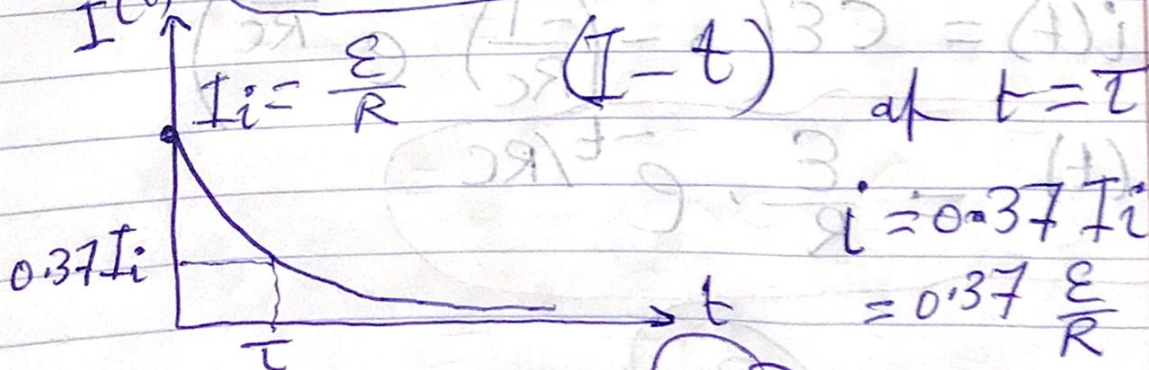 I(t)
Ii = ε/R (I - t) at t = τ
i = 0.37 Ii
0.37Ii
= 0.37 ε/R
t
τ